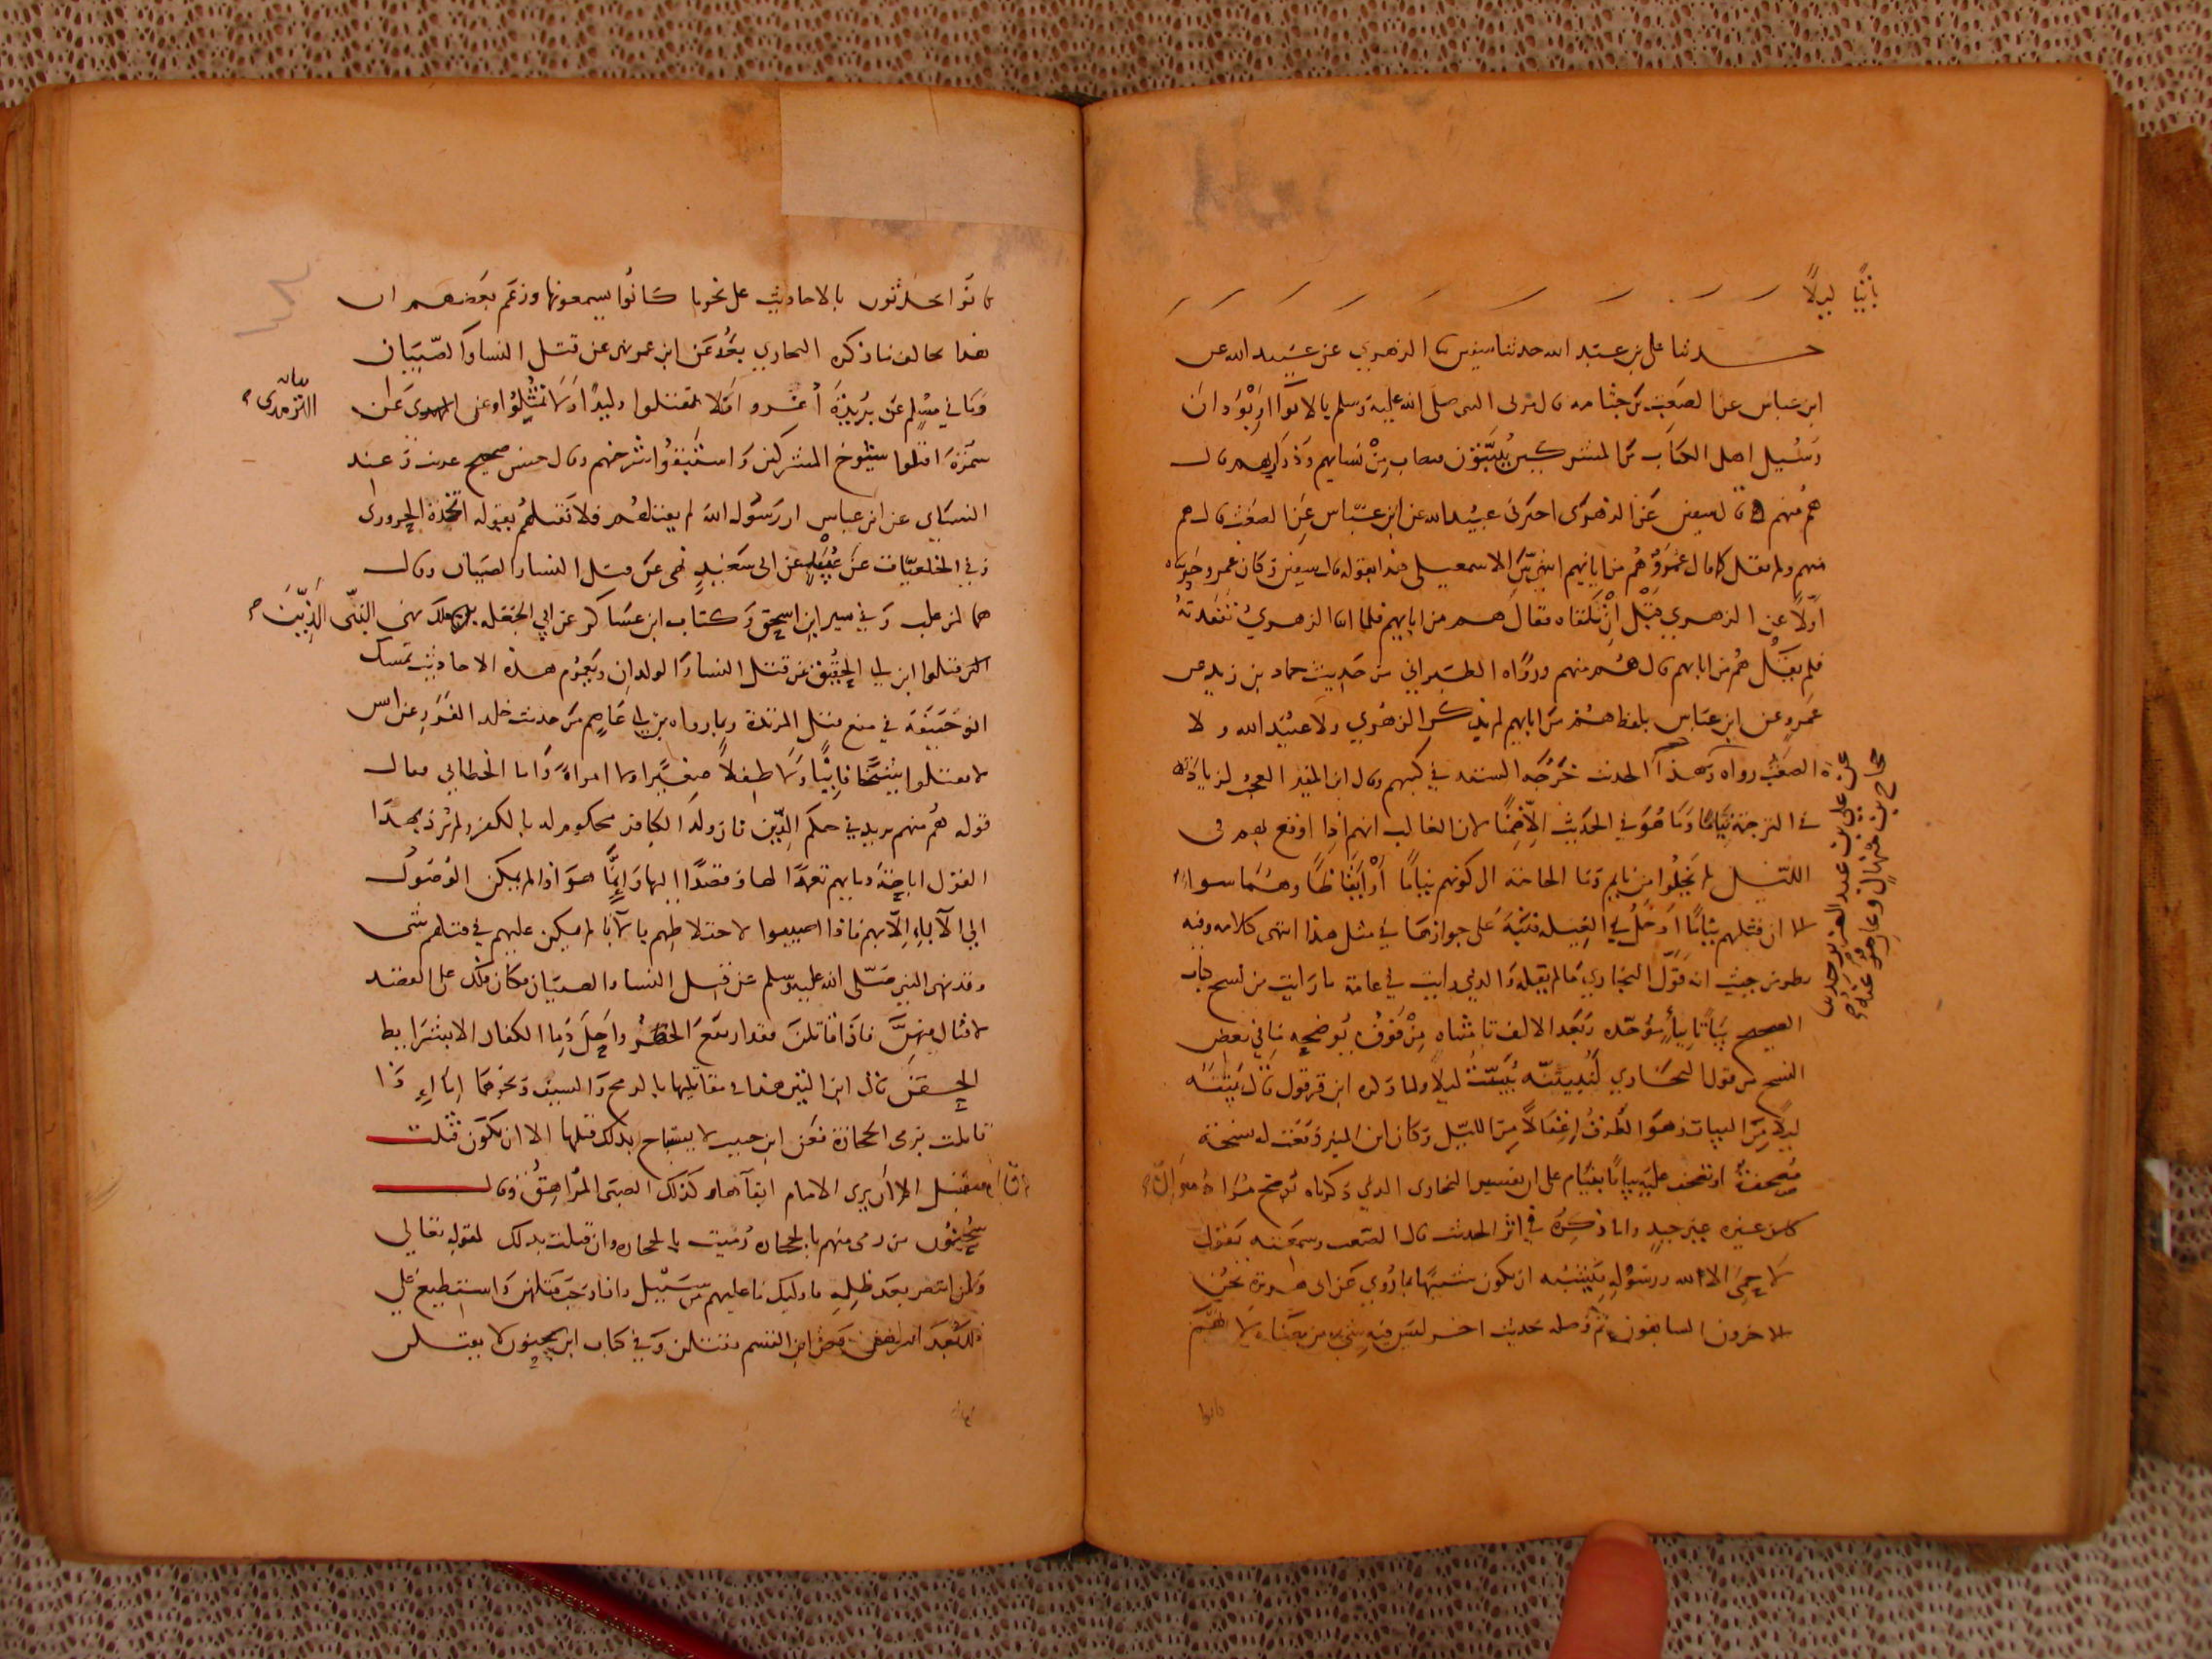 بائتا ليلا
حدثنا علي بن عبد الله حدثنا سفين الزهري عن عبيد الله عن
ابن عباس عن الصعب بن جثامة قال مر بي النبي صلى الله عليه وسلم بالابوا او بودان
وسئيل اهل الكتاب من المشركين يبيتون فيصاب من نسايهم وذراريهم قال
هم منهم قال سفين عن الزهري اخبرني عبيد الله عن ابن عباس عن الصعب قال هم
منهم ولم يقل كما قال عمرو هم من ابايهم انتهى الاسمعيلي هذا بقوله قال سفين وكان عمرو حدثناه
اولا عن الزهري قبل ان نلقاه فقال هم من ابايهم فلما اتانا الزهري تفقدته
فلم يقل هم من ابايهم قال هم منهم ورواه الطبراني من حديث حماد بن زيد عن
عمرو عن ابن عباس بلفظ هم من ابايهم لم يذكر الزهري ولا عبيد الله و لا
الصعب رواه وهذا الحديث خرجه الستة في كتبهم وقال ابن المنير العجب لزيادته
في الترجمة نياما وما هو في الحديث الا ضمنا لان الغالب انهم اذا اوقع بهم في
الليل لم يخلوا من نايم وما الحاجة الى كونهم نياما او ايقاظا وهما سواء
الا ان قتلهم نياما ادخل في الغيلة فنبه على جوازها في مثل هذا انتهى كلامه وفيه
نظر من حيث انه قول البخاري ما لم يقله والذي رايت في عامة ما رايت من نسخ كتاب
الصحيح بياتا بباء موحدة وبعد الالف تا مثناه من فوق يوضحه ما في بعض
النسخ من قول البخاري لنبيتنه يبيت ليلا ولما ذكره ابن قرقول قال نبيتنه
ليلا من البيات وهو الطرق اغتفالا من الليل وكان ابن المنير وقعت له نسخة
مصحفة او تصحف عليه بياتا بنيام على ان تفسير البخاري الذي ذكرناه توضح مراده
كلام غيره غير جيد وانما ذكره في اثر الحديث قال الصعب وسمعته يقول
لا حمى الا لله ورسوله يشبه ان يكون شبيها بما روي عن ابي هريرة نحن
الاخرون السابقون ثم وصله بحديث اخر ليس فيه شيء من معناه لانهم
كانوا
حجاج بن منهال وعارم عنه
عن علي بن عبد العزيز حدثنا
كانوا يحدثون بالاحاديث على نحو ما كانوا يسمعونها وزعم بعضهم ان
هذا يخالف ما ذكره البخاري بعد عن ابن عمر نهى عن قتل النسا والصبيان
وما في مسلم عن بريدة اغزوا ولا تقتلوا وليدا ولا تمثلوا وعن الترمذي عن
سمرة اقتلوا شيوخ المشركين واستبقوا شرخهم وقال حسن صحيح غريب وعند
النسائي عن ابن عباس ان رسول الله لم يقتلهم فلا تقتلهم بقوله لنجدة الحروري
وفي الخلعيات عن عن ابي سعيد نهى عن قتل النسا والصبيان وقال
هما لمن غلب وفي سير ابن اسحق وكتاب ابن عساكر عن نهى النبي الذين
قتلوا ابن ابي الحقيق عن قتل النسا والولدان وبعموم هذه الاحاديث تمسك
ابو حنيفة في منع قتل المرتدة وبما رواه بن ابي عاصم من حديث خلد الفزر عن انس
لا تقتلوا شيخا فانيا ولا طفلا صغيرا ولا امراة واما الخطابي فقال
قوله هم منهم يريد في حكم الدين فان ولد الكافر محكوم له بالكفر ولم يرد بهذا
القول اباحة دمايهم تعمدا لها وقصدا اليها وانما هو اذا لم يمكن الوصول
الى الاباء الا بهم فاذا اصيبوا لاختلاطهم بالابا لم يكن عليهم في قتلهم شي
وقد نهى النبي صلى الله عليه وسلم عن قتل النسا والصبيان فكان ذلك على القصد
لا قتال فيهن فاذا قاتلن فقد ارتفع الحظر واحل دما الكفار الا بشرايط
الحقن قال ابن التين هذا في مقاتلتها بالرمح والسيف ونحوهما اما اذا
قاتلت برمي الحجارة فعن ابن حبيب لا يستباح بذلك قتلها الا ان تكون قتلت
فتقتل الا ان يرى الامام ابقاها وكذلك الصبي المراهق وقال
سحنون من رمى منهم بالحجاره رميت بالحجاره وان قتلت بذلك لقوله تعالى
ولمن انتصر بعد ظلمه فاوليك ما عليهم من سبيل واذا وجب قتلهن واستطيع على
ذلك بعد ابن القسم يقتلن وفي كتاب ابن سحنون لا يقتلن
الترمذي